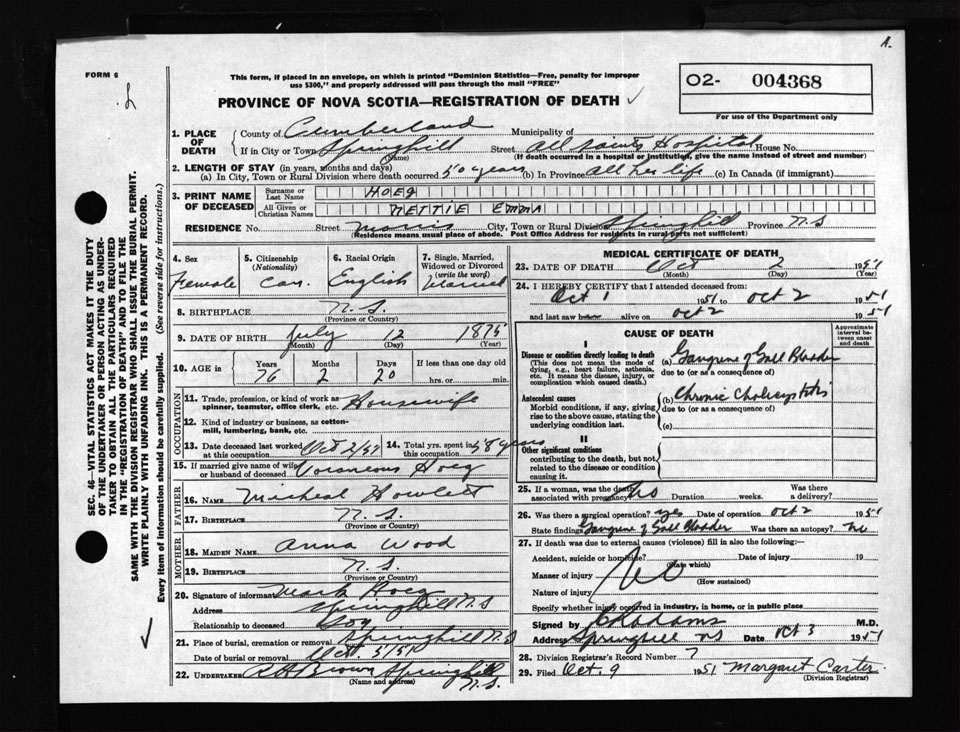 A.
FORM 6
This form, if placed in an envelope, on which is printed "Dominion Statistics—Free, penalty for improper
use $300," and properly addressed will pass through the mail "FREE"
O2- 004368
For use of the Department only
PROVINCE OF NOVA SCOTIA—REGISTRATION OF DEATH ✓
SEC. 46—VITAL STATISTICS ACT MAKES IT THE DUTY
OF THE UNDERTAKER OR PERSON ACTING AS UNDER-
TAKER TO OBTAIN ALL THE PARTICULARS REQUIRED
IN THE "REGISTRATION OF DEATH" AND TO FILE THE
SAME WITH THE DIVISION REGISTRAR WHO SHALL ISSUE THE BURIAL PERMIT.
WRITE PLAINLY WITH UNFADING INK. THIS IS A PERMANENT RECORD.
Every item of information should be carefully supplied. (See reverse side for instructions.)
1. PLACE OF DEATH County of Cumberland Municipality of
If in City or Town Springhill (Name) Street All Saints Hospital House No.
(If death occurred in a hospital or institution, give the name instead of street and number)
2. LENGTH OF STAY (in years, months and days)
(a) In City, Town or Rural Division where death occurred 50 years (b) In Province all her life (c) In Canada (if immigrant)
3. PRINT NAME OF DECEASED Surname or Last Name HOEG
All Given or Christian Names NETTIE EMMA
RESIDENCE No. Street Morris City, Town or Rural Division Springhill Province N.S
(Residence means usual place of abode. Post Office Address for residents in rural parts not sufficient)
4. Sex Female
5. Citizenship (Nationality) Can.
6. Racial Origin English
7. Single, Married, Widowed or Divorced (write the word)
8. BIRTHPLACE N.S. (Province or Country)
9. DATE OF BIRTH July (Month) 12 (Day) 1875 (Year)
10. AGE in Years 76 Months 2 Days 20 If less than one day old hrs. or min.
OCCUPATION
11. Trade, profession, or kind of work as spinner, teamster, office clerk, etc. Housewife
12. Kind of industry or business, as cotton-mill, lumbering, bank, etc.
13. Date deceased last worked at this occupation Oct 2/51 14. Total yrs. spent in this occupation 58 years
15. If married give name of wife or husband of deceased Hoeg
FATHER
16. NAME Micheal Howlett
17. BIRTHPLACE N.S. (Province or Country)
MOTHER
18. MAIDEN NAME Anna Wood
19. BIRTHPLACE N.S. (Province or Country)
20. Signature of informant Mark Hoeg
Address Springhill N.S
Relationship to deceased Son
21. Place of burial, cremation or removal Springhill N.S
Date of burial or removal Oct. 5/51
22. UNDERTAKER Brown Springhill N.S. (Name and address)
MEDICAL CERTIFICATE OF DEATH
23. DATE OF DEATH Oct (Month) 2 (Day) 1951 (Year)
24. I HEREBY CERTIFY that I attended deceased from:
Oct 1 1951 to Oct 2 1951
and last saw her alive on Oct 2 1951
CAUSE OF DEATH
Approximate interval between onset and death
I
Disease or condition directly leading to death (This does not mean the mode of dying, e.g., heart failure, asthenia, etc. It means the disease, injury, or complication which caused death.)
(a) Gangrene of Gall Bladder
due to (or as a consequence of)
Antecedent causes
Morbid conditions, if any, giving rise to the above cause, stating the underlying condition last.
(b) Chronic Cholicystitis
due to (or as a consequence of)
(c)
II
Other significant conditions contributing to the death, but not related to the disease or condition causing it.
25. If a woman, was the death associated with pregnancy? No Duration weeks. Was there a delivery?
26. Was there a surgical operation? yes Date of operation Oct 2 1951
State findings Gangrene of Gall Bladder Was there an autopsy? No
27. If death was due to external causes (violence) fill in also the following:—
Accident, suicide or homicide? (State which) Date of injury 19
Manner of injury No (How sustained)
Nature of injury
Specify whether injury occurred in industry, in home, or in public place
Signed by Adams M.D.
Address Springhill NS Date Oct 3 1951
28. Division Registrar's Record Number 7
29. Filed Oct. 9 1951 Margaret Carter (Division Registrar)